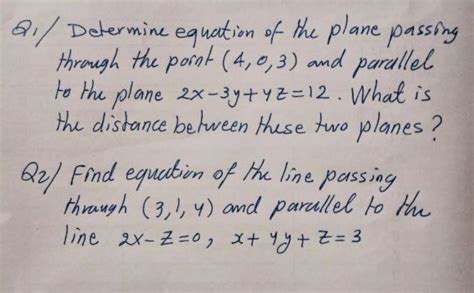 Q1/ Determine equation of the plane passing
through the point (4,0,3) and parallel
to the plane 2x-3y+4z=12. What is
the distance between these two planes?
Q2/ Find equation of the line passing
through (3,1,4) and parallel to the
line 2x-z=0, x+4y+z=3